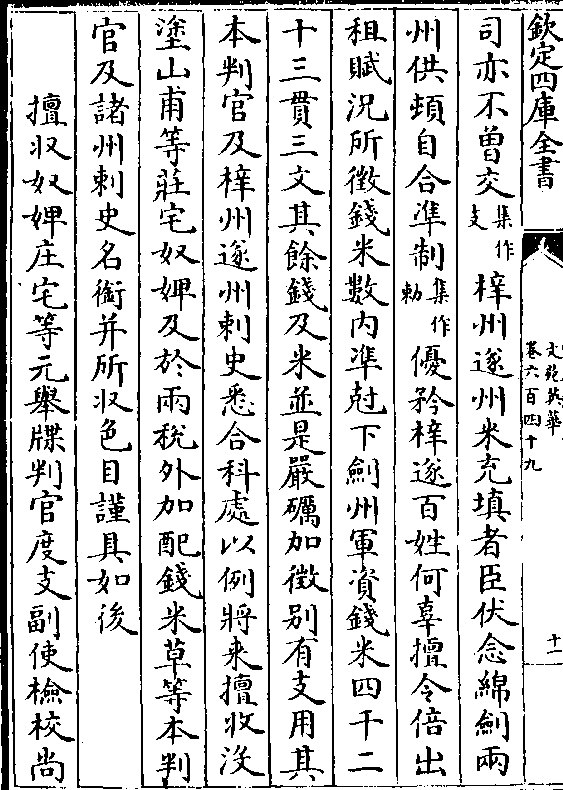 欽定四庫全書
文苑英華
卷六百四十九
十一
司亦不曽交集作支梓州遂州米充填者臣伏念綿劍兩
州供頓自合準制集作勅優矜梓遂百姓何辜擅令倍出
租賦況所徵錢米數内準尅下劍州軍資錢米四千二
十三貫三文其餘錢及米並是嚴礪加徵别有支用其
本判官及梓州遂州刺史悉合科處以例將来擅收沒
塗山甫等莊宅奴婢及於兩稅外加配錢米草等本判
官及諸州刺史名銜并所収色目謹具如後
擅収奴婢庄宅等元舉牒判官度支副使檢校尚